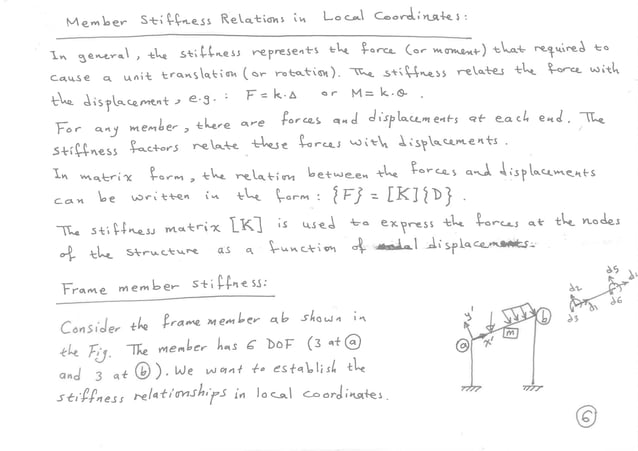 Member Stiffness Relations in Local Coordinates:
In general, the stiffness represents the force (or moment) that required to
cause a unit translation (or rotation). The stiffness relates the force with
the displacement, e.g. : F = k.Δ or M = k.θ .
For any member, there are forces and displacements at each end. The
stiffness factors relate these forces with displacements.
In matrix form, the relation between the forces and displacements
can be written in the form : {F} = [K]{D} .
The stiffness matrix [K] is used to express the forces at the nodes
of the structure as a function of nodal displacements.
Frame member stiffness:
Consider the frame member ab shown in
the Fig. The member has 6 DOF (3 at ⓐ
and 3 at ⓑ). We want to establish the
stiffness relationships in local coordinates.
y'
x'
a
m
b
d2
d3
d1
d5
d6
6